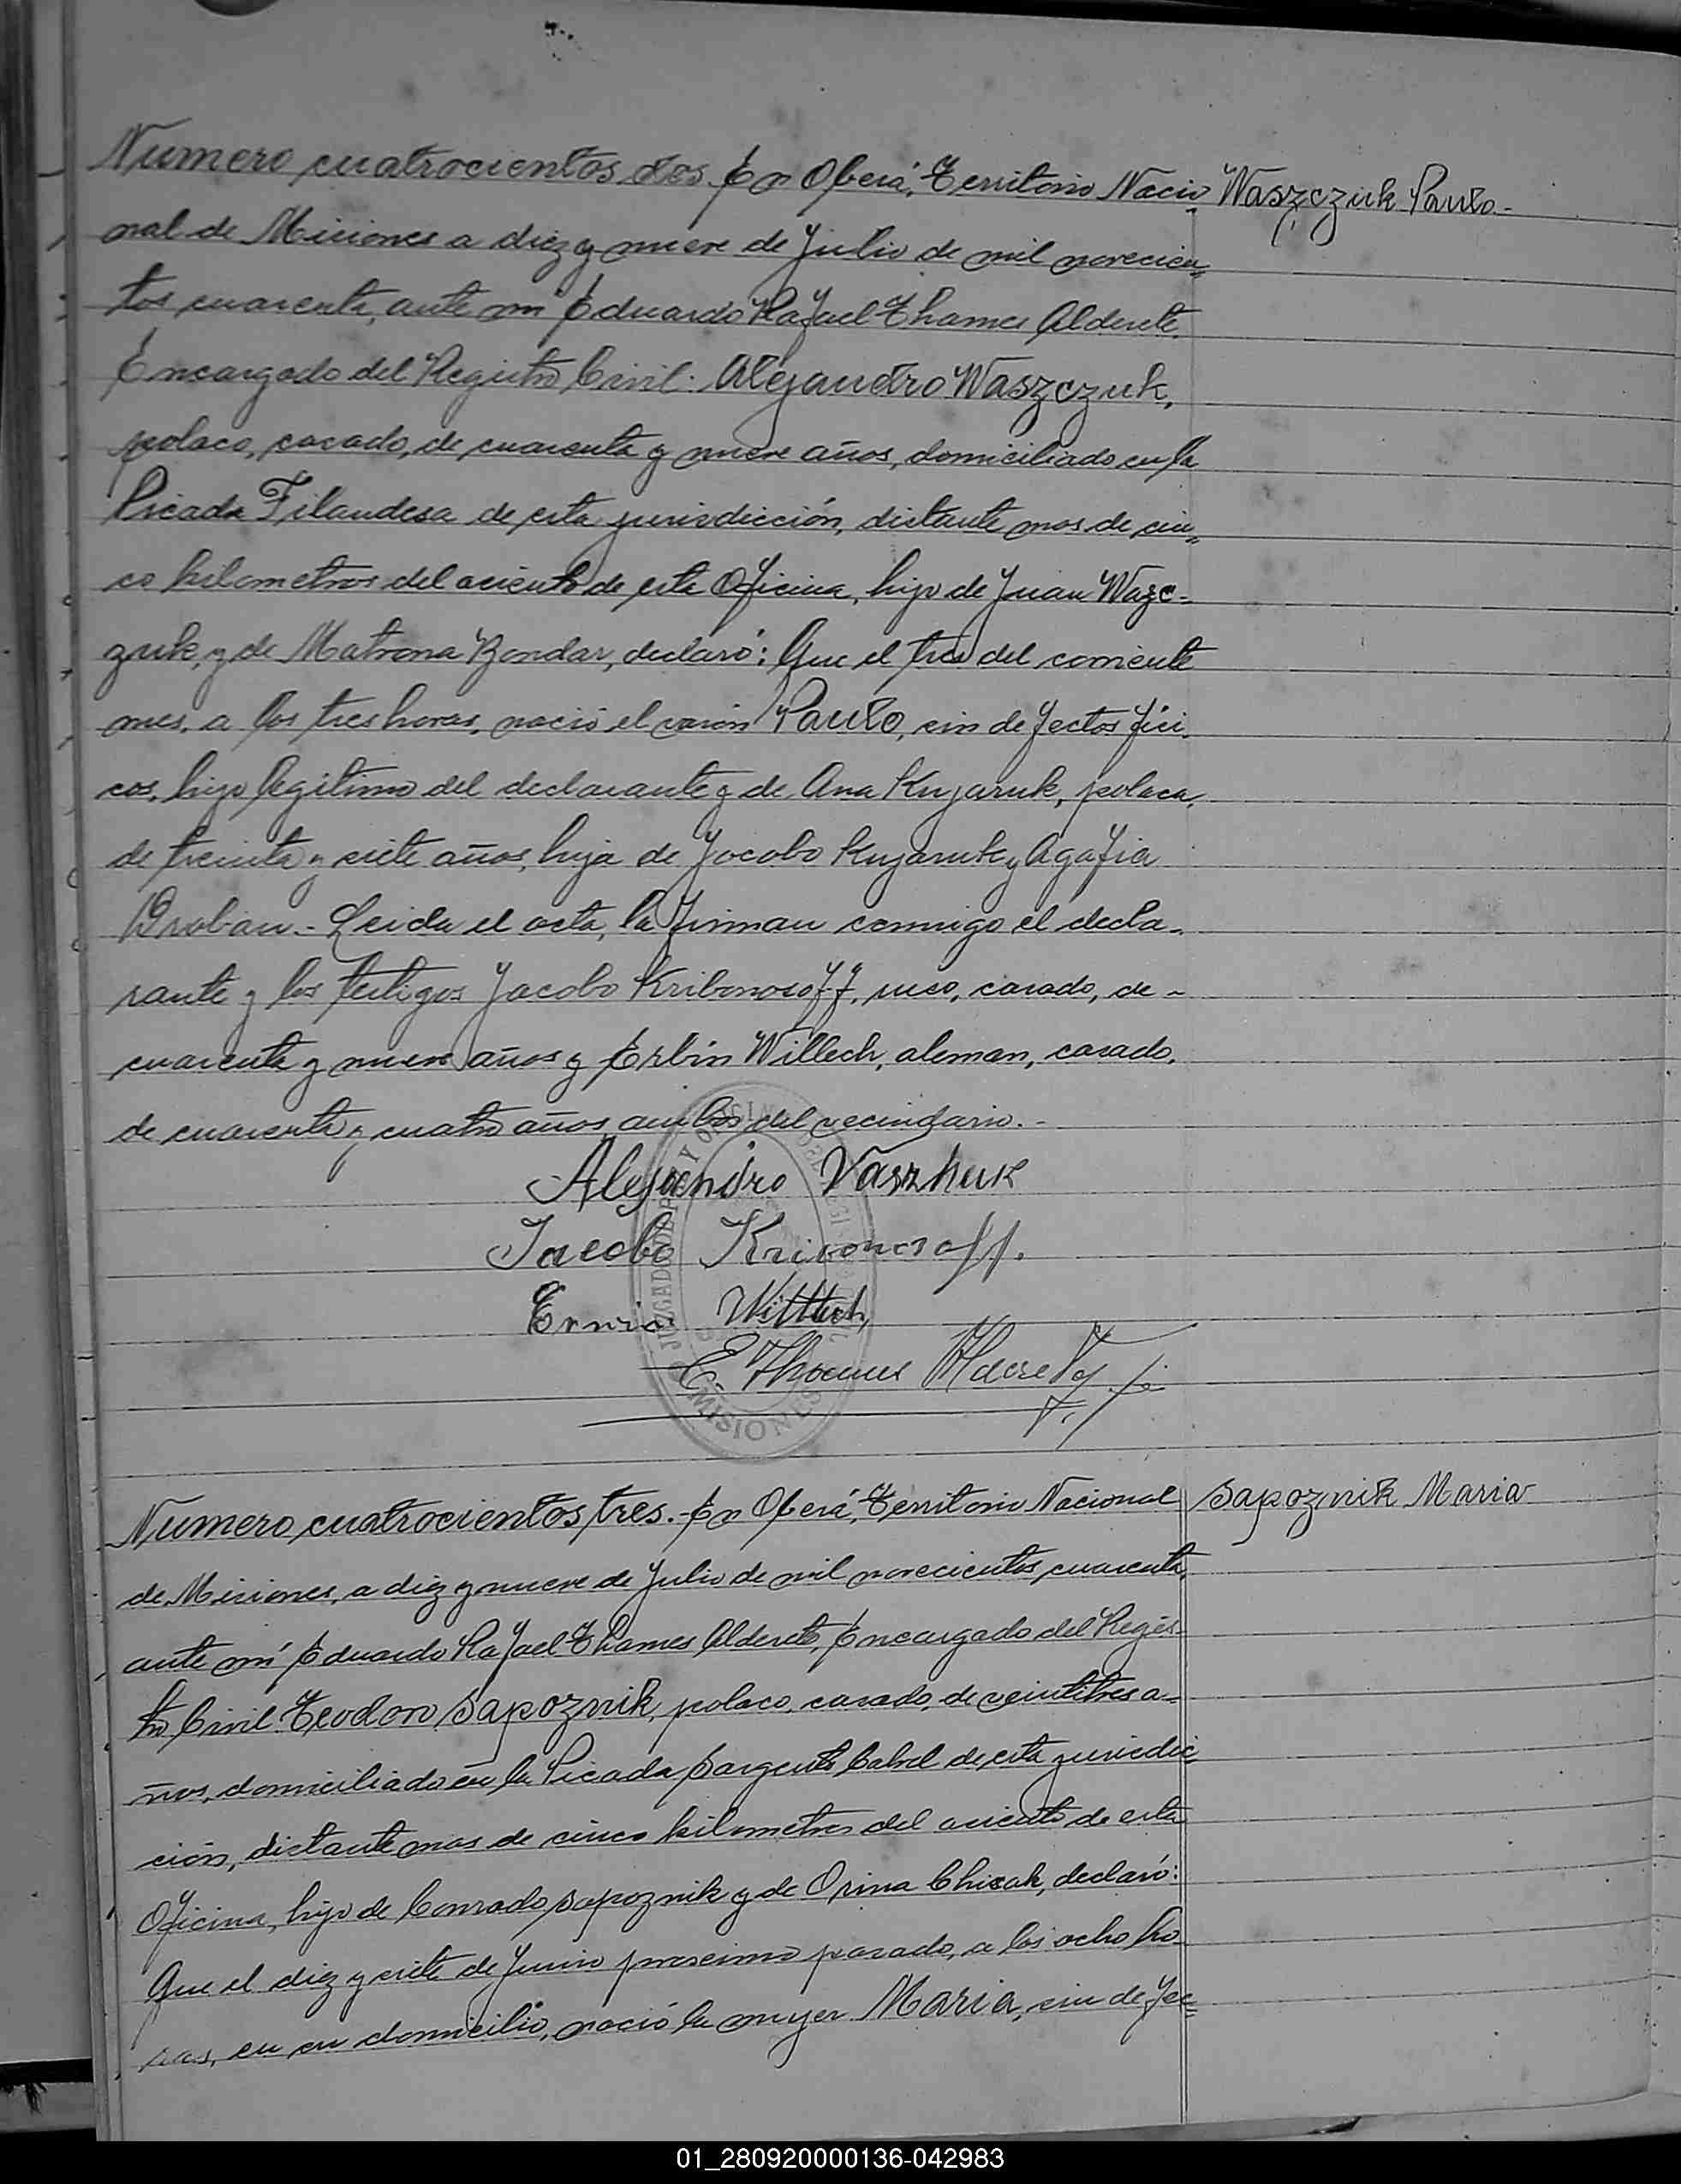 Numero cuatrocientos dos. En Oberá, Territorio Nacio
Waszczuk Paulo.-
nal de Misiones a diez y nueve de Julio de mil novecien=
tos cuarenta, ante mi Eduardo Rafael Thames Alderete.
Encargado del Registro Civil. Alejandro Waszczuk,
polaco, casado, de cuarenta y nueve años, domiciliado en la
Picada Filandesa de esta jurisdicción, distante mas de cin=
co kilometros del asiento de esta Oficina, hijo de Juan Wazc-
zuk, y de Matrona Bondar, declaró: Que el tres del corriente
mes, a las tres horas, nació el varón Paulo, sin defectos fisi-
cos, hijo legitimo del declarante y de Ana Kujaruk, polaca,
de treinta y siete años, hija de Jacobo Kujaruk y Agafia
Leida el acta, la firman conmigo el decla-
rante y los testigos Jacobo Kribonosoff, ruso, casado, de -
cuarenta y nueve años y Erbin Willech, aleman, casado,
de cuarenta y cuatro años, ambos del vecindario.-
Alejandro Vaszhuk
Jacobo Krivonosoff.
Erwin Wittech
E. Thames Alderete
MISIONES
Numero cuatrocientos tres. En Oberá, Territorio Nacional
Sapoznik Maria
de Misiones, a diez y nueve de Julio de mil novecientos cuarenta,
ante mí Eduardo Rafael Thames Alderete, Encargado del Regis-
tro Civil. Teodoro Sapoznik, polaco, casado, de veintitres a-
ños, domiciliado en la Picada Sargento Cabral de esta jurisdic
ción, distante mas de cinco kilometros del asiento de esta
Oficina, hijo de Conrado Sapoznik y de Orina declaró:
Que el diez y siete de Junio proximo pasado, a las ocho ho-
ras, en su domicilio, nació la mujer Maria, sin defec=
01_280920000136-042983